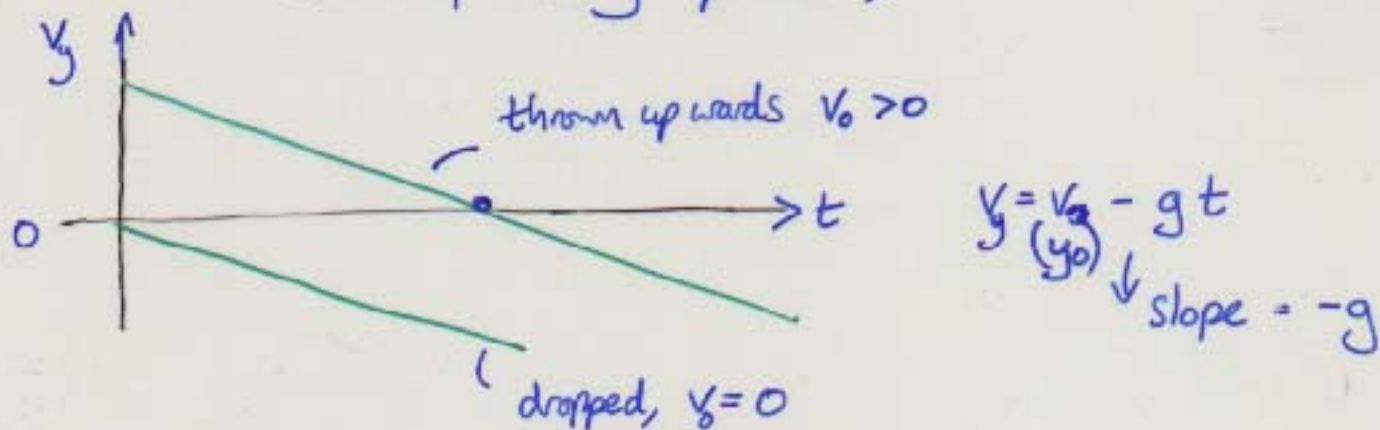 v_y
thrown upwards v₀ >0
0
t
v_y = v₀ - g t
(y0)
slope = -g
dropped, v₀ = 0